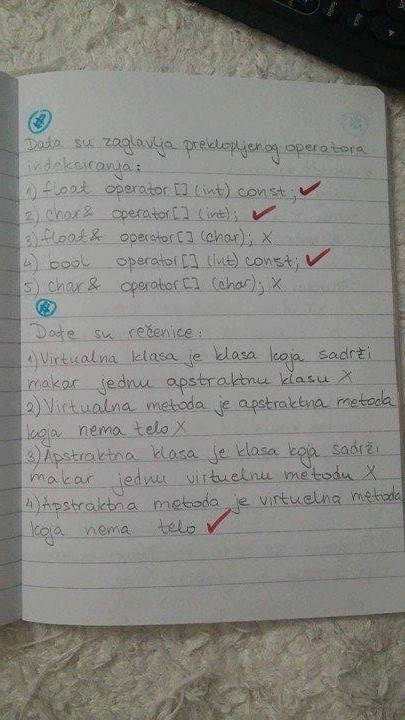 Data su zaglavlja preklopljenog operatora
indeksiranja:
1) float operator[] (int) const; ✓
2) char& operator[] (int); ✓
3) float& operator[] (char); X
4) bool operator[] (int) const; ✓
5) char& operator[] (char); X
Date su rečenice:
1) Virtualna klasa je klasa koja sadrži
makar jednu apstraktnu klasu X
2) Virtualna metoda je apstraktna metoda
koja nema telo X
3) Apstraktna klasa je klasa koja sadrži
makar jednu virtuelnu metodu X
4) Apstraktna metoda je virtuelna metoda
koja nema telo ✓